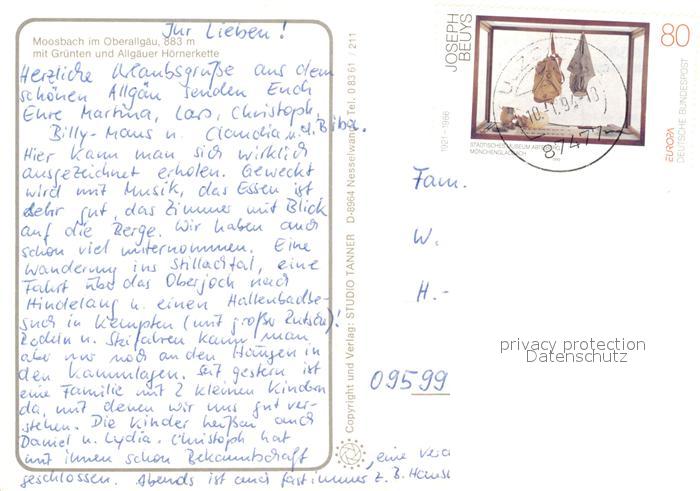 Ihr Lieben!
Moosbach im Oberallgäu, 883 m
mit Grünten und Allgäuer Hörnerkette
Herzliche Urlaubsgrüße aus dem
schönen Allgäu senden Euch
Eure Martina, Lars, Christoph,
Billy-Maus u. Claudia u. J. Biba.
Hier kann man sich wirklich
ausgezeichnet erholen. Geweckt
wird mit Musik, das Essen ist
sehr gut, das Zimmer mit Blick
auf die Berge. Wir haben auch
schon viel unternommen. Eine
Wanderung ins Stillachtal, eine
Fahrt über das Oberjoch nach
Hindelang u. einen Hallenbadbe-
such in Kempten (mit großer Rutsche)!
Rodeln u. Skifahren kann man
aber nur noch an den Hängen in
den Kammlagen. Seit gestern ist
eine Familie mit 2 kleinen Kindern
da, mit denen wir uns gut ver-
stehen. Die Kinder heißen auch
Daniel u. Lydia. Christoph hat
mit ihnen schon Bekanntschaft
geschlossen. Abends ist auch fast immer
, eine Vera
z. B. Hausm
Copyright und Verlag: STUDIO TANNER D-8964 Nesselwang Tel. 0 83 61 / 211
JOSEPH
BEUYS
1921 - 1986
80
STÄDTISCHES MUSEUM
MÖNCHENGLADBACH
EUROPA
DEUTSCHE BUNDESPOST
87477
Fam.
W.
H.-
09599
privacy protection
Datenschutz